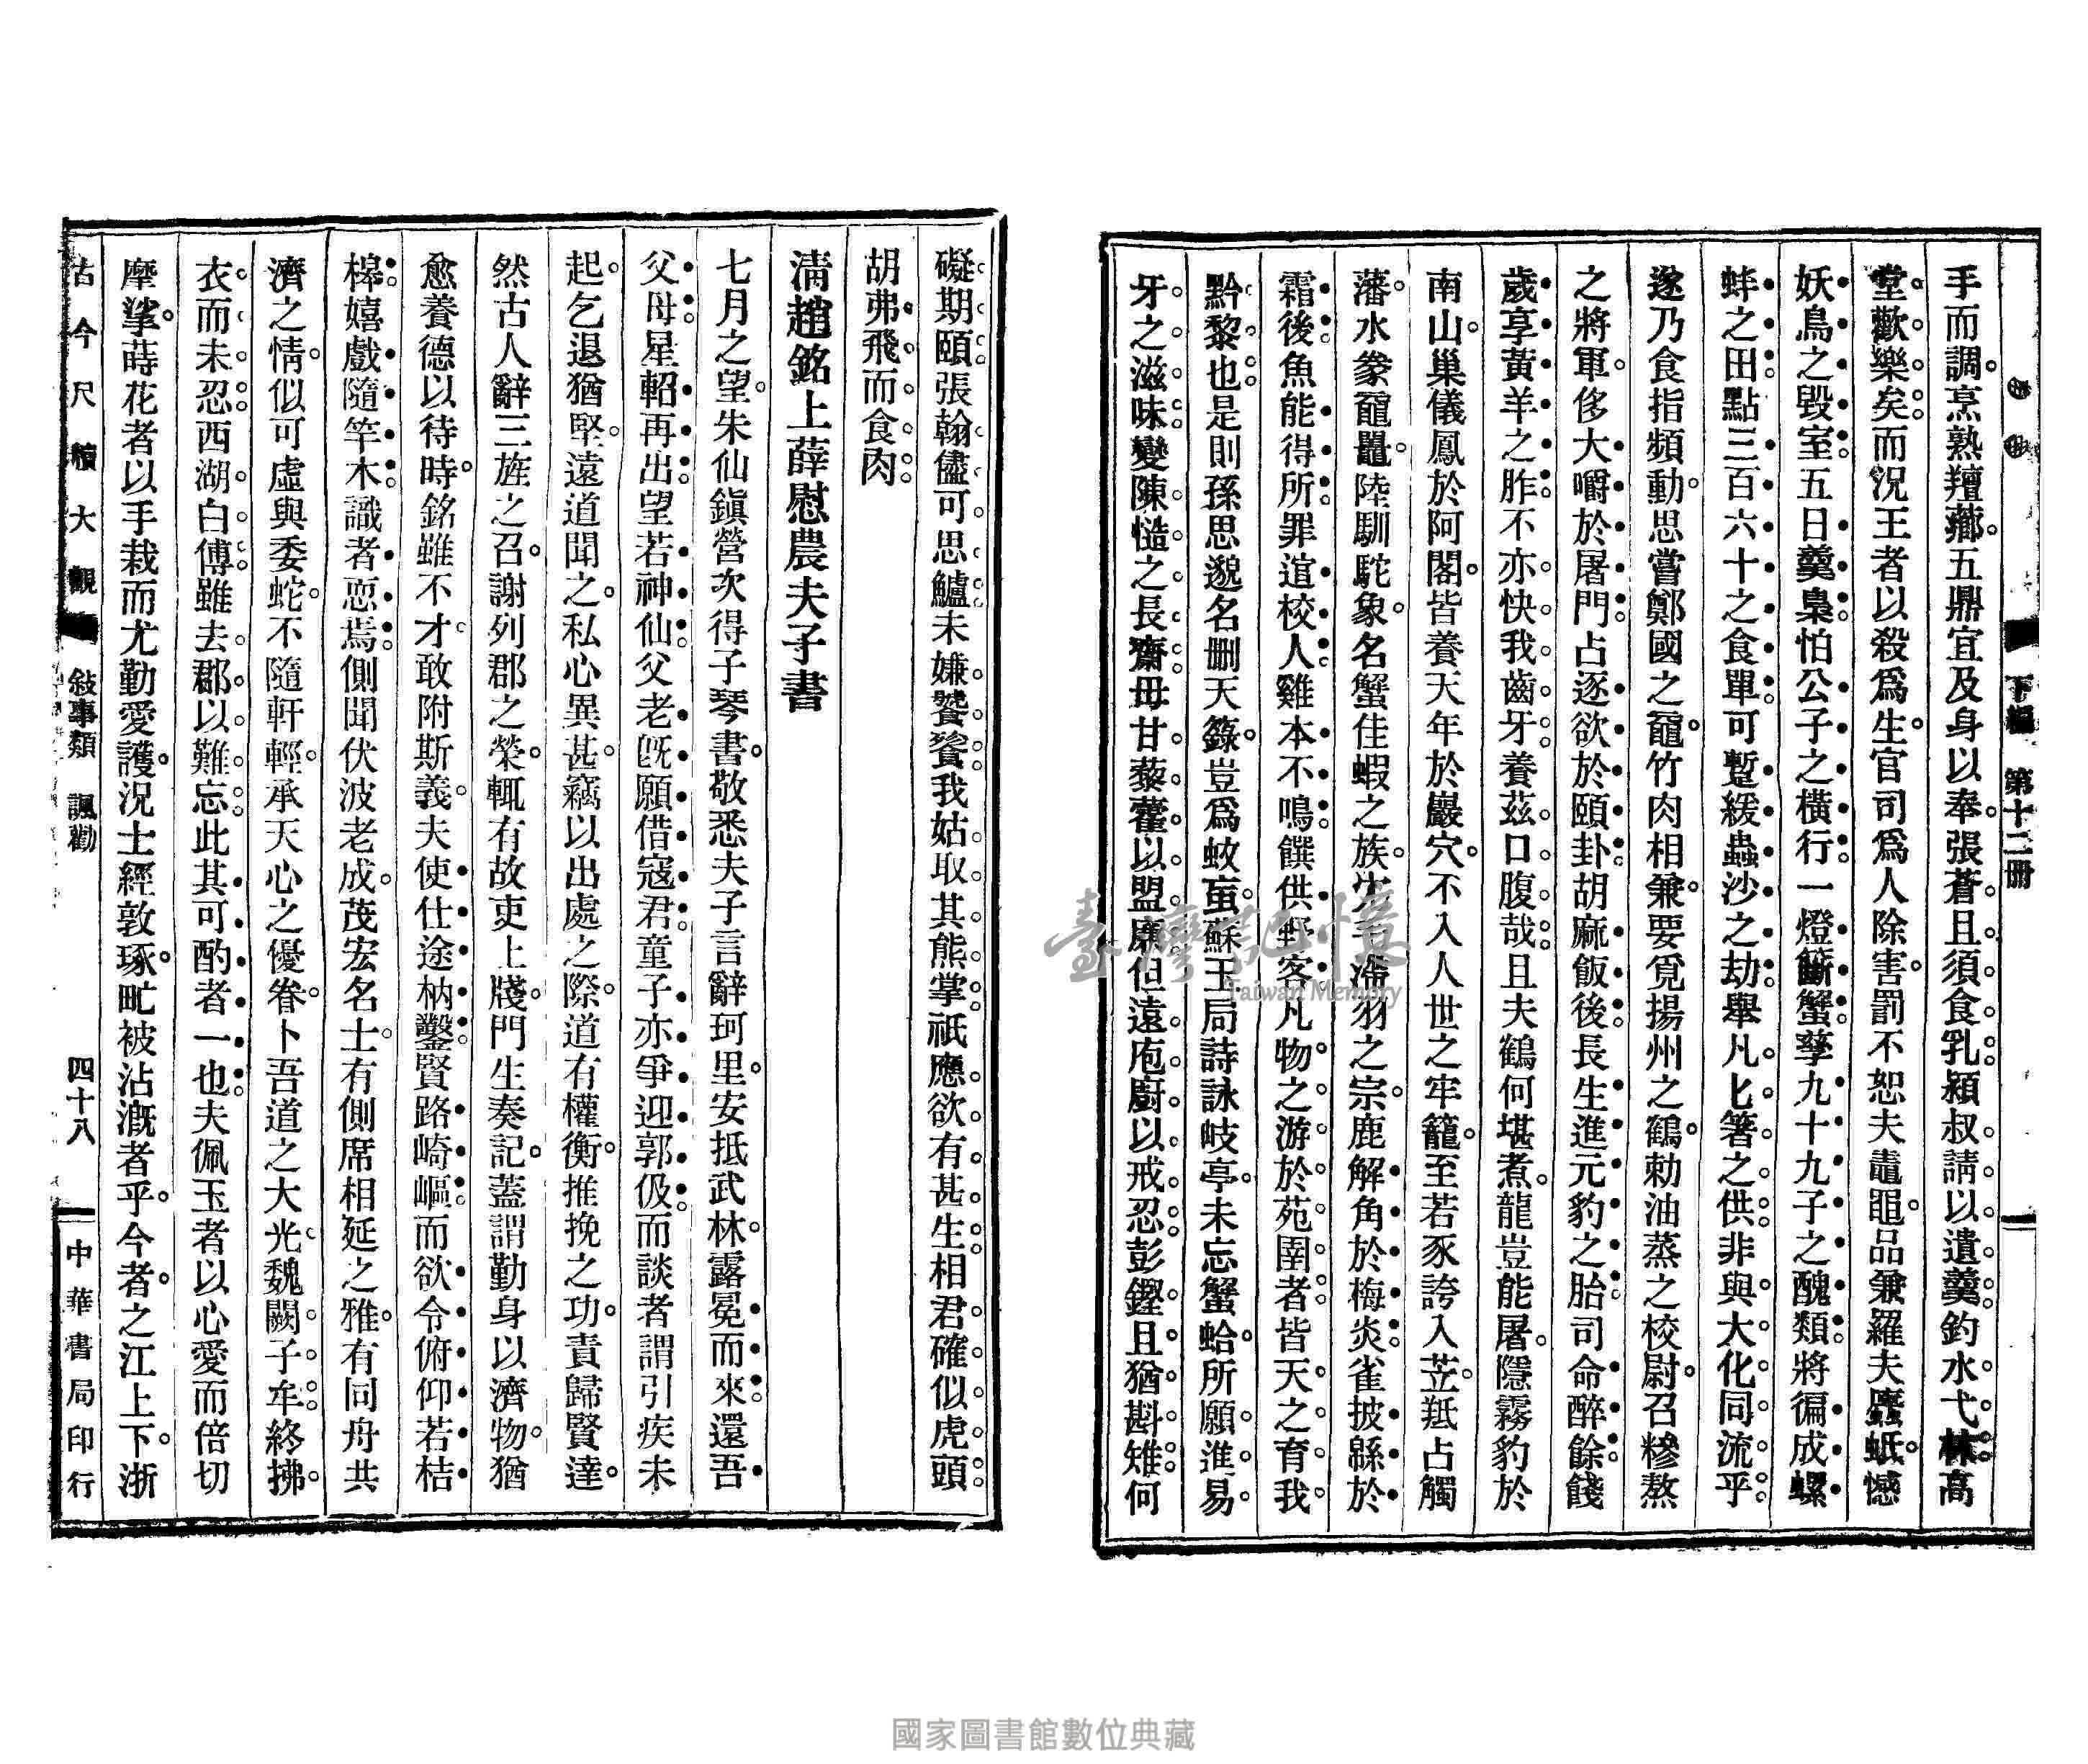 下編 第十二冊
手而調烹熟羶薌五鼎宜及身以奉張蒼且須食乳潁叔請以遺羹釣水弋林高
堂歡樂矣而況王者以殺爲生官司爲人除害罰不恕夫鼃黽品兼羅夫麋蚳憾
妖鳥之毀室五日羹梟怕公子之橫行一燈籪蟹孳九十九子之醜類將徧成螺
蚌之田點三百六十之食單可暫緩蟲沙之劫舉凡匕箸之供非與大化同流乎
遂乃食指頻動思嘗鄭國之黿竹肉相兼要覓揚州之鶴勅油蒸之校尉召糝熬
之將軍侈大嚼於屠門占逐欲於頤卦胡麻飯後長生進元豹之胎司命醉餘餞
歲享黃羊之胙不亦快我齒牙養茲口腹哉且夫鶴何堪煮龍豈能屠隱霧豹於
南山巢儀鳳於阿閣皆養天年於巖穴不入人世之牢籠至若豕誇入苙羝占觸
藩水豢黿鼉陸馴駝象名蟹佳蝦之族介毛滯羽之宗鹿解角於梅炎雀披緜於
霜後魚能得所罪誼校人雞本不鳴饌供野客凡物之游於苑囿者皆天之育我
黔黎也是則孫思邈名删天籙豈爲蚊䖟蘇玉局詩詠岐亭未忘蟹蛤所願進易
牙之滋味變陳慥之長齋毋甘藜藿以盟廟但遠庖廚以戒忍彭鏗且猶斟雉何
礙期頤張翰儘可思鱸未嫌饕餮我姑取其熊掌祇應欲有甚生相君確似虎頭
胡弗飛而食肉
清趙銘上薛慰農夫子書
七月之望朱仙鎭營次得子琴書敬悉夫子言辭珂里安抵武林露冕而來還吾
父母星軺再出望若神仙父老旣願借寇君童子亦爭迎郭伋而談者謂引疾未
起乞退猶堅遠道聞之私心異甚竊以出處之際道有權衡推挽之功責歸賢達
然古人辭三旌之召謝列郡之榮輒有故吏上牋門生奏記蓋謂勤身以濟物猶
愈養德以待時銘雖不才敢附斯義夫使仕途枘鑿賢路崎嶇而欲令俯仰若桔
槔嬉戲隨竿木識者恧焉側聞伏波老成茂宏名士有側席相延之雅有同舟共
濟之情似可虛與委蛇不隨軒輕承天心之優眷卜吾道之大光魏闕子牟終拂
衣而未忍西湖白傅雖去郡以難忘此其可酌者一也夫佩玉者以心愛而倍切
摩挲蒔花者以手栽而尤勤愛護況士經敦琢甿被沾漑者乎今者之江上下浙
古今尺牘大觀 敍事類 諷勸 四十八 中華書局印行
臺灣記憶
Taiwan Memory
國家圖書館數位典藏